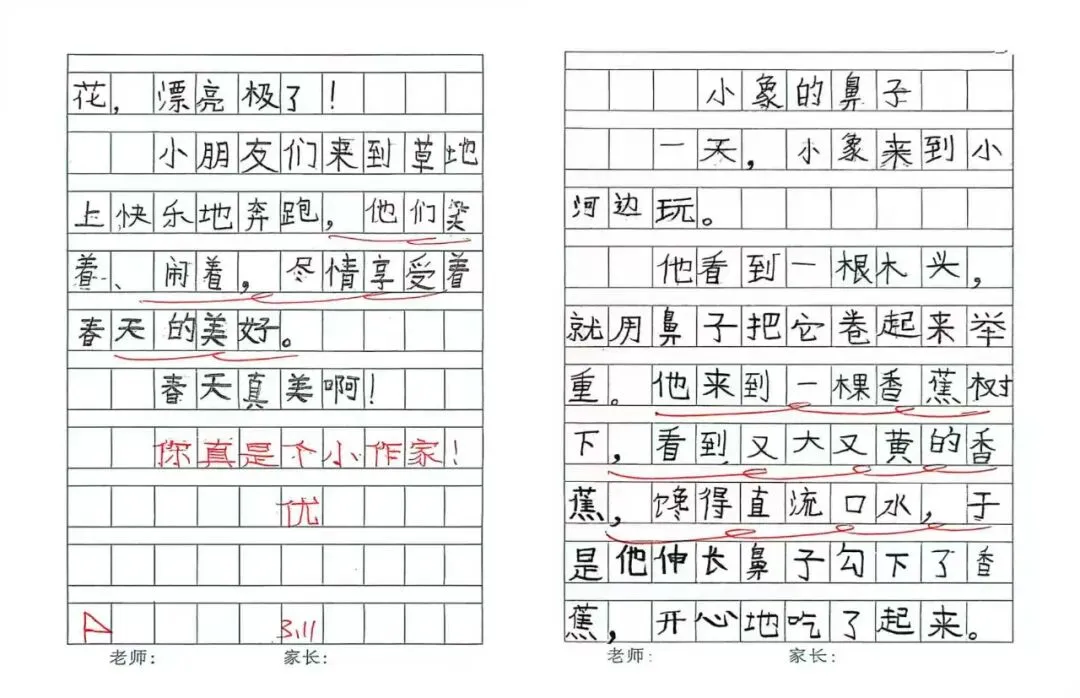 花，漂亮极了！
小朋友们来到草地
上快乐地奔跑，他们笑
着、闹着，尽情享受着
春天的美好。
春天真美啊！
你真是个小作家！
优
A
3.11
老师：
家长：
小象的鼻子
一天，小象来到小
河边玩。
他看到一根木头，
就用鼻子把它卷起来举
重。他来到一棵香蕉树
下，看到又大又黄的香
蕉，馋得直流口水，于
是他伸长鼻子勾下了香
蕉，开心地吃了起来。
老师：
家长：